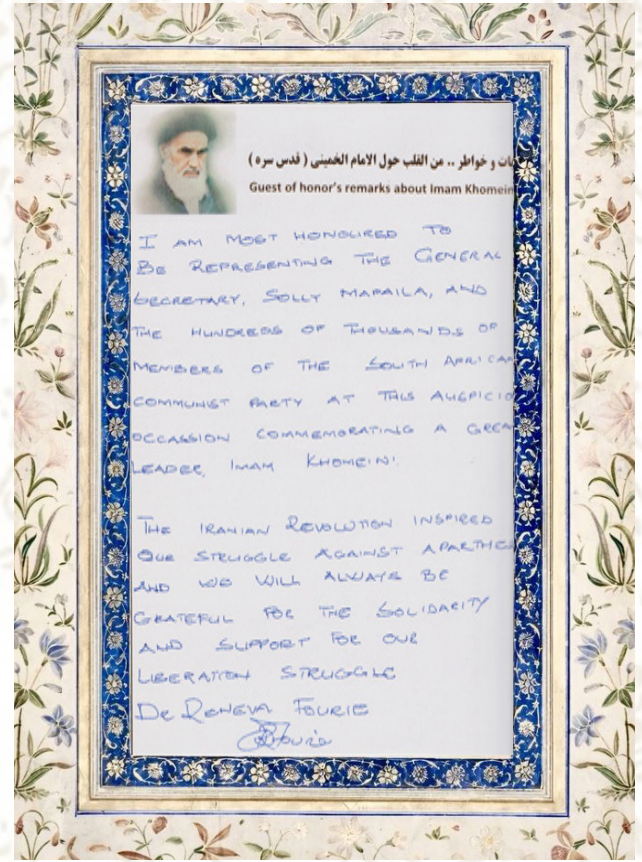 ات و خواطر .. من القلب حول الامام الخميني ( قدس سره )
Guest of honor's remarks about Imam Khomein
I AM MOST HONOURED TO
BE REPRESENTING THE GENERAL
SECRETARY, SOLLY MAPAILA, AND
THE HUNDREDS OF THOUSANDS OF
MEMBERS OF THE SOUTH AFRICAN
COMMUNIST PARTY AT THIS AUSPICIO
OCCASSION COMMEMORATING A GREA
LEADER, IMAM KHOMEINI.
THE IRANIAN REVOLUTION INSPIRED
OUR STRUGGLE AGAINST APARTHE
AND WE WILL ALWAYS BE
GRATEFUL FOR THE SOLIDARITY
AND SUPPORT FOR OUR
LIBERATION STRUGGLE
DR RENEVA FOURIE
RFourie